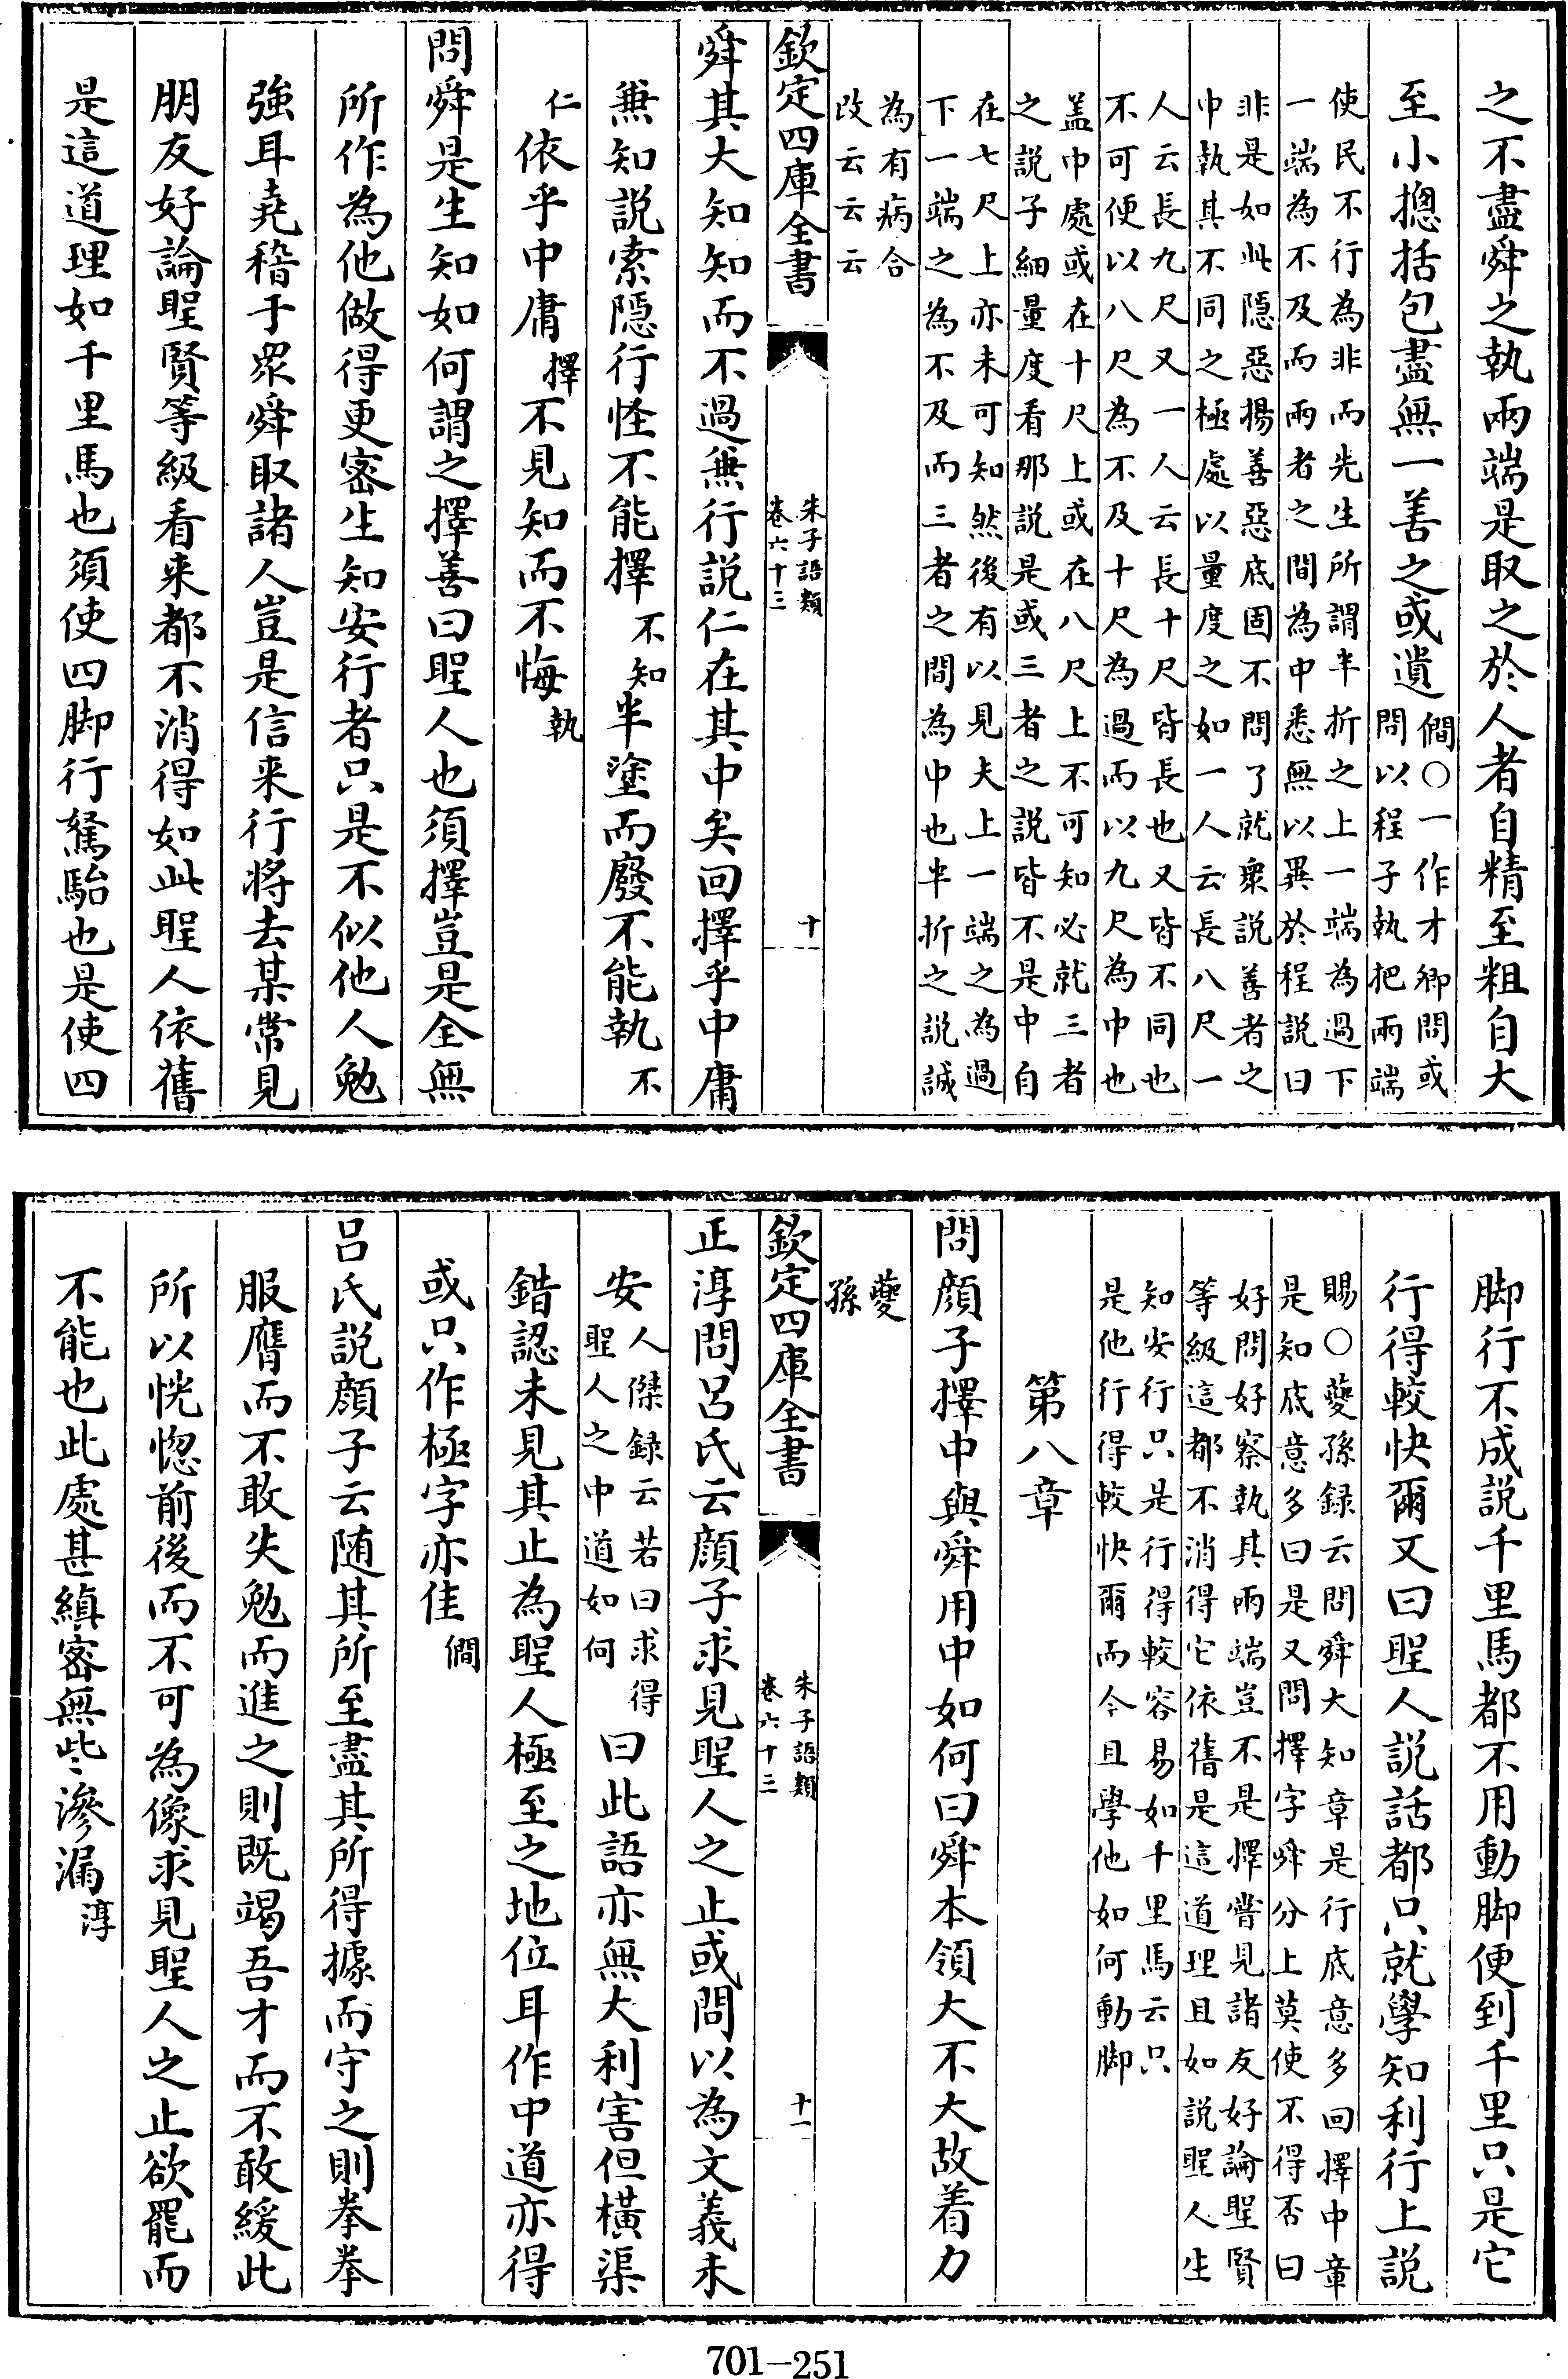 之不盡舜之執兩端是取之於人者自精至粗自大
至小摠括包盡無一善之或遺
僩〇一作才卿問或
問以程子執把兩端
使民不行為非而先生所謂半折之上一端為過下
一端為不及而兩者之間為中悉無以異於程說曰
非是如此隱惡揚善惡底固不問了就衆說善者之
中執其不同之極處以量度之如一人云長八尺一
人云長九尺又一人云長十尺皆長也又皆不同也
不可便以八尺為不及十尺為過而以九尺為中也
盖中處或在十尺上或在八尺上不可知必就三者
之說子細量度看那說是或三者之說皆不是中自
在七尺上亦未可知然後有以見夫上一端之為過
下一端之為不及而三者之間為中也半折之說誠
為有病合
改云云云
欽定四庫全書
朱子語類
卷六十三
十
舜其大知知而不過兼行說仁在其中矣回擇乎中庸
兼知說索隱行怪不能擇不知半塗而廢不能執不
仁依乎中庸擇不見知而不悔執
問舜是生知如何謂之擇善曰聖人也須擇豈是全無
所作為他做得更密生知安行者只是不似他人勉
強耳堯稽于衆舜取諸人豈是信来行將去某常見
朋友好論聖賢等級看来都不消得如此聖人依舊
是這道理如千里馬也須使四脚行駑駘也是使四
脚行不成說千里馬都不用動脚便到千里只是它
行得較快爾又曰聖人說話都只就學知利行上說
賜〇夔孫録云問舜大知章是行底意多回擇中章
是知底意多曰是又問擇字舜分上莫使不得否曰
好問好察執其兩端豈不是擇嘗見諸友好論聖賢
等級這都不消得它依舊是這道理且如說聖人生
知安行只是行得較容易如千里馬云只
是他行得較快爾而今且學他如何動脚
第八章
問顔子擇中與舜用中如何曰舜本領大不大故着力
夔
孫
欽定四庫全書
朱子語類
卷六十三
十一
正淳問呂氏云顔子求見聖人之止或問以為文義未
安
人傑録云若曰求得
聖人之中道如何
曰此語亦無大利害但橫渠
錯認未見其止為聖人極至之地位耳作中道亦得
或只作極字亦佳僩
呂氏說顔子云随其所至盡其所得據而守之則拳拳
服膺而不敢失勉而進之則既竭吾才而不敢緩此
所以恍惚前後而不可為像求見聖人之止欲罷而
不能也此處甚縝密無些滲漏淳
701-251